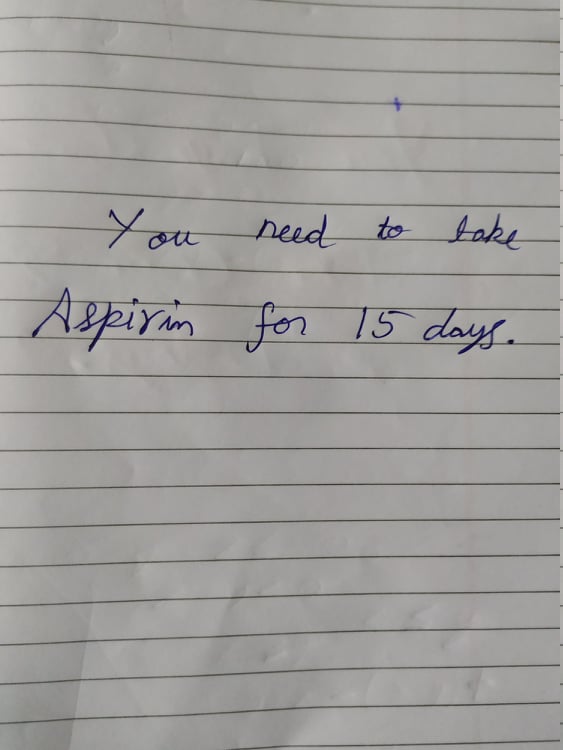 You need to take
Aspirin for 15 days.